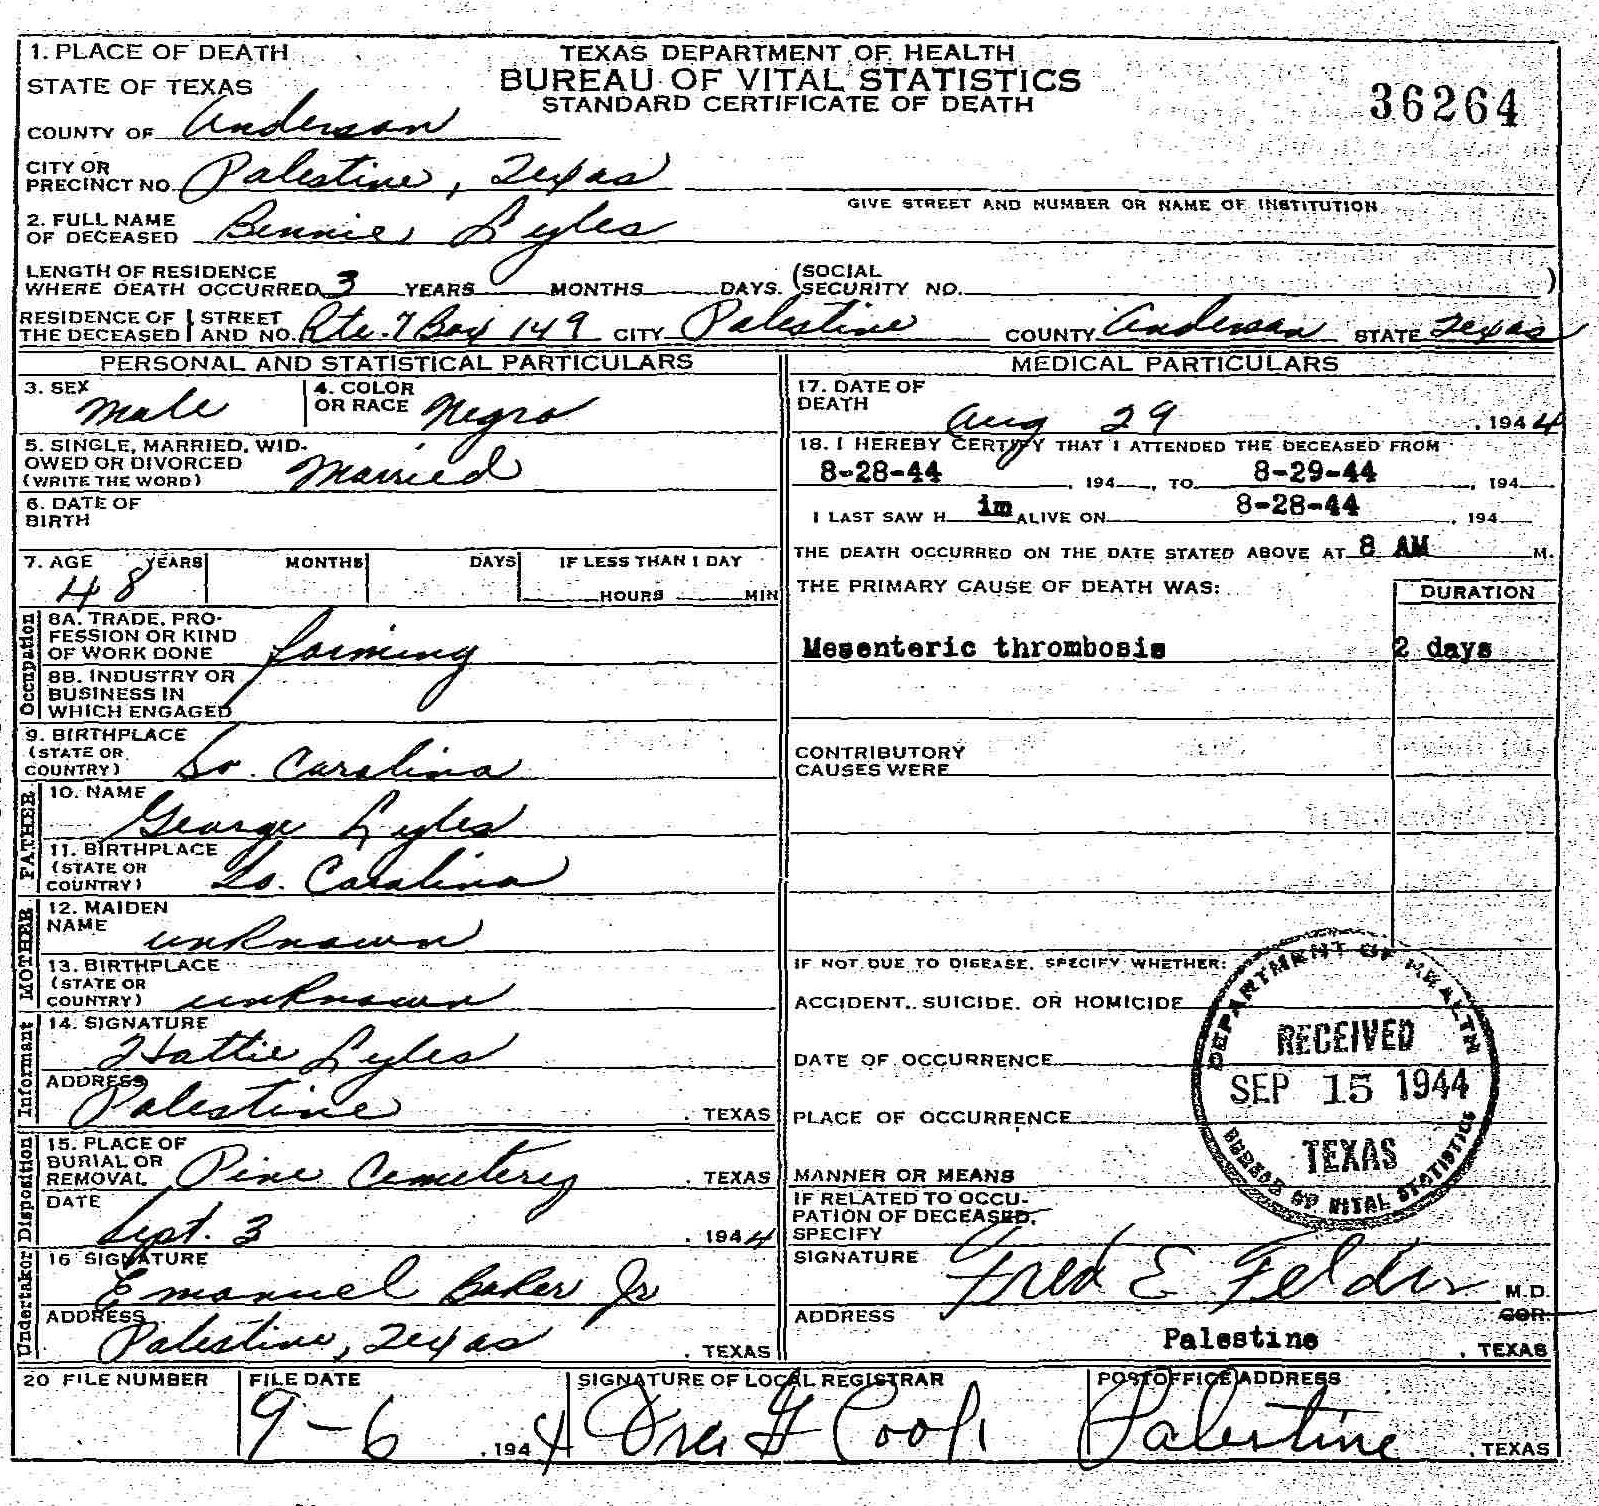 1. PLACE OF DEATH
STATE OF TEXAS
TEXAS DEPARTMENT OF HEALTH
BUREAU OF VITAL STATISTICS
STANDARD CERTIFICATE OF DEATH
36264
COUNTY OF Anderson
CITY OR PRECINCT NO. Palestine, Texas
GIVE STREET AND NUMBER OR NAME OF INSTITUTION
2. FULL NAME OF DECEASED Bennie Lyles
LENGTH OF RESIDENCE WHERE DEATH OCCURRED 3 YEARS MONTHS DAYS. (SOCIAL SECURITY NO. )
RESIDENCE OF THE DECEASED STREET AND NO. Rte. 7 Box 149 CITY Palestine COUNTY Anderson STATE Texas
PERSONAL AND STATISTICAL PARTICULARS
3. SEX Male
4. COLOR OR RACE Negro
5. SINGLE, MARRIED, WIDOWED OR DIVORCED (WRITE THE WORD) Married
6. DATE OF BIRTH
7. AGE YEARS MONTHS DAYS IF LESS THAN 1 DAY
48 HOURS MIN
Occupation
8A. TRADE, PROFESSION OR KIND OF WORK DONE farming
8B. INDUSTRY OR BUSINESS IN WHICH ENGAGED
9. BIRTHPLACE (STATE OR COUNTRY) So. Carolina
FATHER
10. NAME George Lyles
11. BIRTHPLACE (STATE OR COUNTRY) So. Carolina
MOTHER
12. MAIDEN NAME unknown
13. BIRTHPLACE (STATE OR COUNTRY) unknown
Informant
14. SIGNATURE Hattie Lyles
ADDRESS Palestine , TEXAS
Disposition
15. PLACE OF BURIAL OR REMOVAL Pine Cemetery , TEXAS
DATE Sept. 3 , 1944
Undertaker
16 SIGNATURE Emanuel Baker Jr
ADDRESS Palestine, Texas , TEXAS
MEDICAL PARTICULARS
17. DATE OF DEATH Aug 29 , 1944
18. I HEREBY CERTIFY THAT I ATTENDED THE DECEASED FROM
8-28-44 , 194 , TO 8-29-44 , 194
I LAST SAW H im ALIVE ON 8-28-44 , 194
THE DEATH OCCURRED ON THE DATE STATED ABOVE AT 8 AM M.
THE PRIMARY CAUSE OF DEATH WAS: DURATION
Mesenteric thrombosis 2 days
CONTRIBUTORY CAUSES WERE
IF NOT DUE TO DISEASE, SPECIFY WHETHER:
ACCIDENT, SUICIDE, OR HOMICIDE
DATE OF OCCURRENCE
PLACE OF OCCURRENCE
MANNER OR MEANS
IF RELATED TO OCCUPATION OF DECEASED, SPECIFY
DEPARTMENT OF HEALTH
RECEIVED
SEP 15 1944
TEXAS
BUREAU OF VITAL STATISTICS
SIGNATURE Fred E Felder M.D.
COR.
ADDRESS Palestine , TEXAS
20 FILE NUMBER
FILE DATE 9-6 , 1944
SIGNATURE OF LOCAL REGISTRAR
POSTOFFICE ADDRESS Palestine , TEXAS